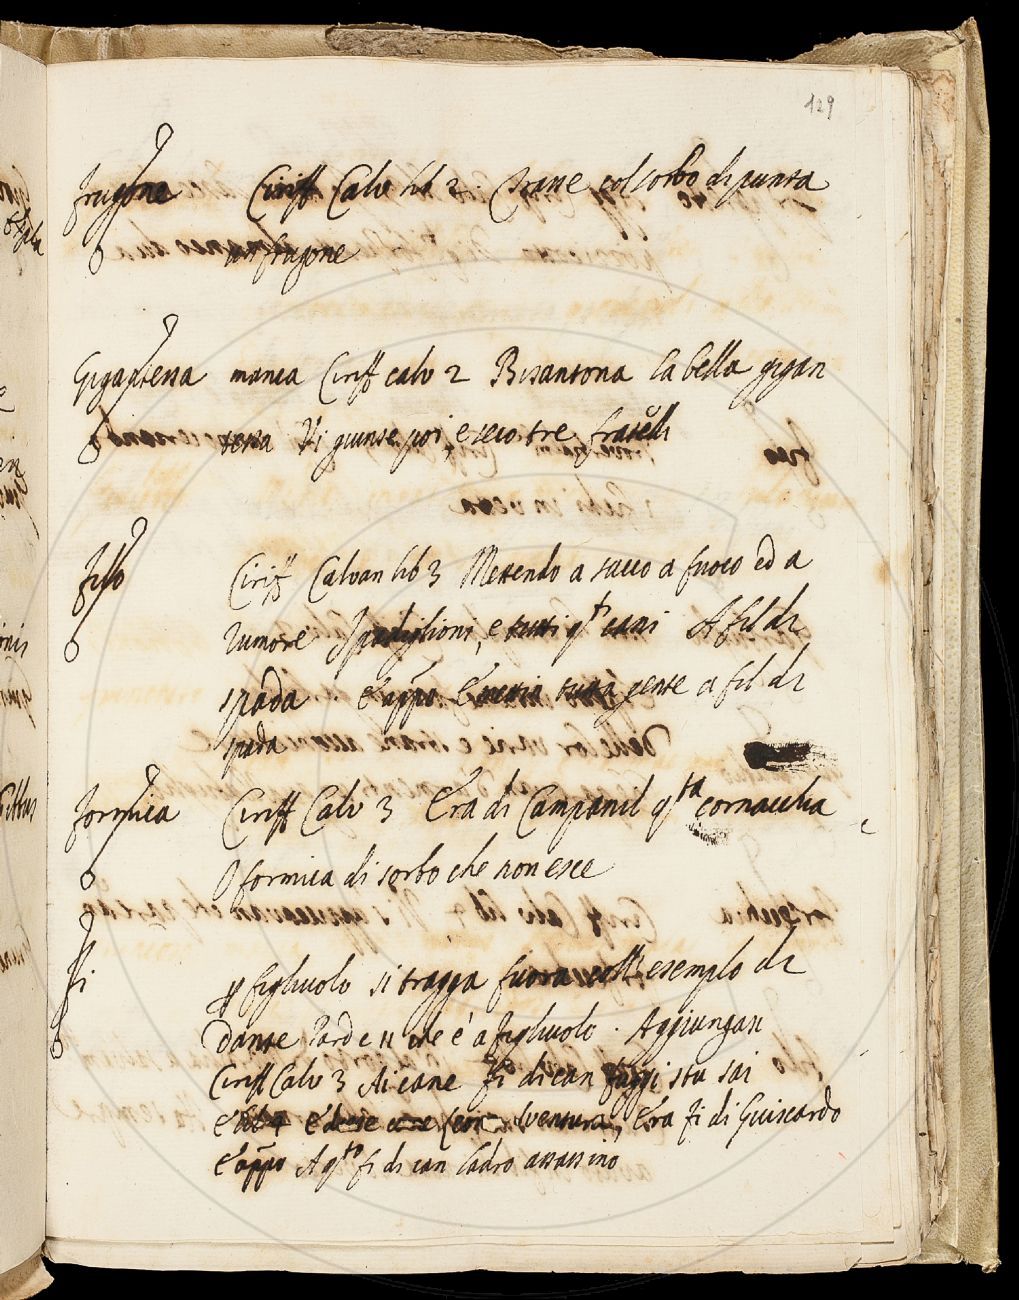 129
frugone Ciriff Calv lib 2. Trasse col sorbo di punta
un frugone
Gigantessa manca Ciriff calv 2 Bisantona la bella gigan
tessa Vi giunse poi, e seco tre fratelli
filo Ciriff Calvan lib 3 Metendo a sacco a fuoco ed a
rumore I padiglioni, e tutti qti cani A fil di
spada E appo E mettia tutta gente a fil di
spada
formica Ciriff Calv 3 Era di Campanil qsta cornacchia
O formica di sorbo che non esce
fi p figliuolo si tragga fuora coll' esemplo di
Dante Par che è a figliuolo. Aggiungasi
Ciriff Calv 3 Ai cane fi di can fuggi stu sai
E lib 4 sventura, Era fi di Guiscardo
E appo A qto fi di can ladro assassino